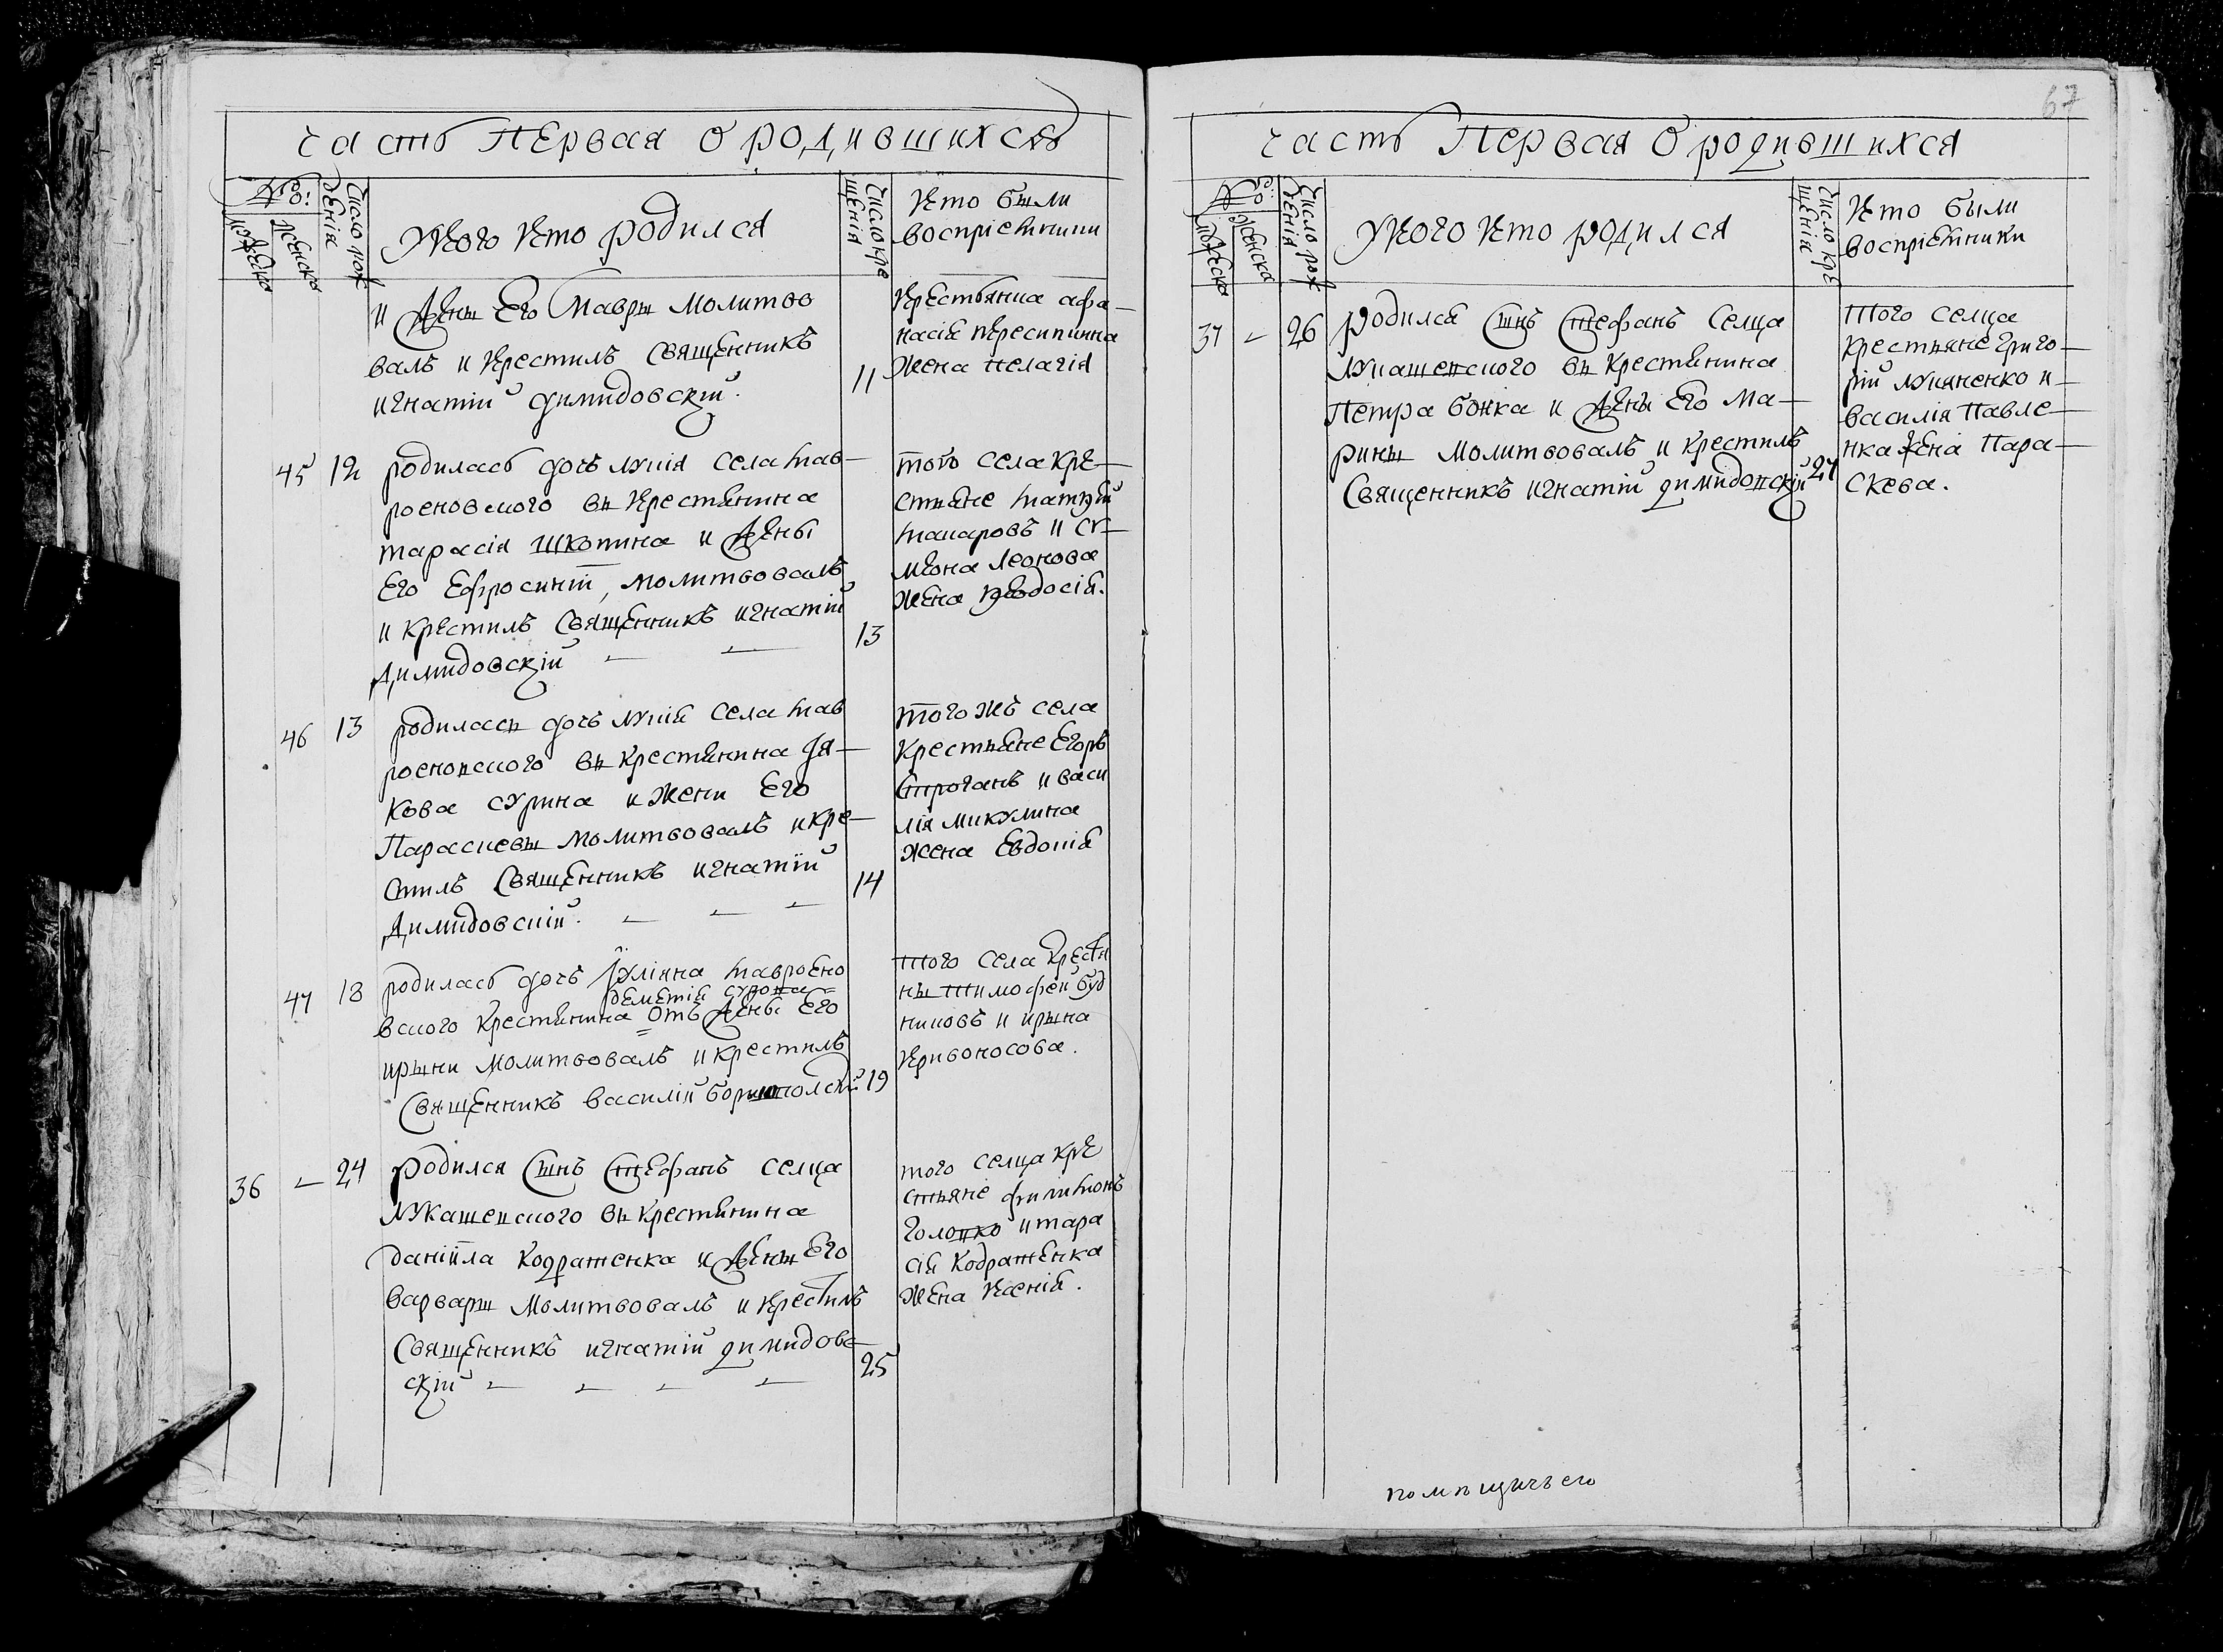 часть ПЕрвая О родившихся
№ро:
мужеска
женска
Число рож
денія
Укого Кто родился
Число кре
щенія
Кто были
воспріемники
и жены Его Мавры молитво
валъ и Крестилъ Священникъ
игнатій димидовскій.
11
Крестьянина афа-
насія пересипкина
жена пелагія
45 12
родилась дочъ лукія села мав-
роеновского вк Крестянина
тарасія Шкопина и жены
Его Ефросиніи, молитвовалъ
и крестилъ Священникъ игнатій
Димидовскій
13
того села кре-
стьяне
макаровъ и
леонова
жена феодосія.
46 13
родилась дочъ лукія села мав
роеновского вк крестянина Оя-
кова сурина и жени Его
Парасцевы молитвовалъ и кре-
стилъ Священникъ игнатій
Димидовскій.
14
того жъ села
Крестьяне Егоръ
Строганъ и васи
лія микулина
жена Евдокія
47 18
родилась дочъ Іуліяна мавроено
дементія
вского крестянина Отъ жены Его
ирыни молитвовалъ и крестилъ
Священникъ василій бориспольскій
19
того села крестя
ны Тимофей буд
никовъ и ирына
Кривоносова.
36 - 24
родился Сынъ Стефанъ селца
лукашевского вк крестянина
даніила Кодратенка и жены Его
варвары молитвовалъ и крестилъ
Священникъ игнатій димидовс
скій
25
того селца кре
стьяне филимонъ
Головко и тара
сія Кодратенка
жена Ксенія.
67
часть Первая О родившихся
№ро:
мужеска
женска
Число рож
денія
Укого Кто родился
Число кре
щенія
Кто были
воспріемники
37 - 26
родился Сынъ Стефанъ Селца
лукашевского вк крестянина
Петра бойка и жены Его Ма-
рины молитвовалъ и крестилъ
Священникъ игнатій димидовскій
27
Того селца
крестьяне григо-
рій лукяненко и-
василія Павле-
нка жена Пара-
скева.
помѣщичъего